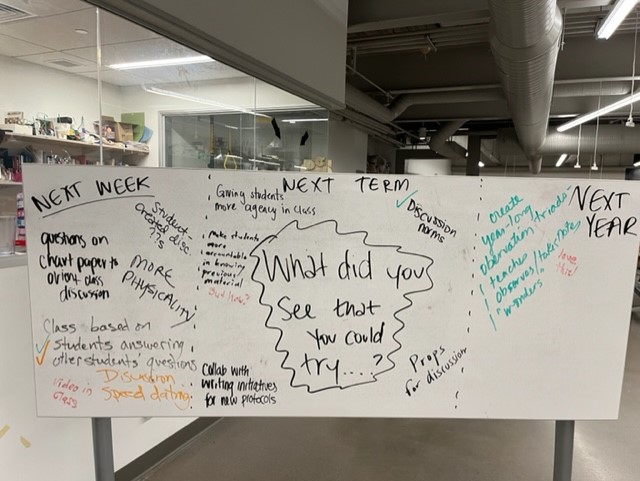 NEXT WEEK
Student-
created disc.
??s
questions on
chart paper to
orient class
discussion
MORE
PHYSICALITY
Class based on
students answering
other students' questions
Discussion
Speed dating
Video in
class
NEXT TERM
Giving students
more agency in class
Discussion
norms
Make students
more
accountable
in knowing
previous
material
But how?
What did you
See that
you could
try....?
Collab with
writing initiatives
for new protocols
Props
for discussion
NEXT
YEAR
create
year-long
observation
teacher
observes/takes notes
wonders
love
this!